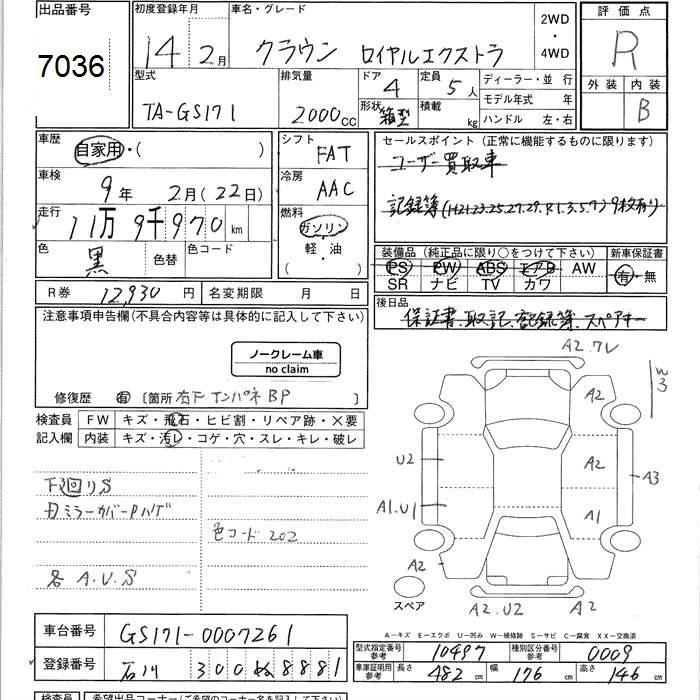 出品番号 初度登録年月 車名・グレード 2WD・4WD 評価点
7036 14年2月 クラウン ロイヤルエクストラ R
型式 排気量 ドア 4 定員 5人 ディーラー・並行 外装 内装
TA-GS171 2000cc 形状 箱型 積載 kg モデル年式 年 B
ハンドル 左・右
車歴 自家用・( ) シフト FAT セールスポイント(正常に機能するものに限ります)
ユーザー買取車
車検 9年 2月(22日) 冷房 AAC
記録簿(H21.23.25.27.29.R1.3.5.7)9枚有り
走行 11万9千970km 燃料 ガソリン・軽・油・( )
色 黒 色替 色コード
装備品(純正品に限り○をつけて下さい) 新車保証書
PS PW ABS エアB AW 有・無
SR ナビ TV カワ
R券 12,930円 名変期限 月 日 後日品
保証書、取記、記録簿、スペアキー
注意事項申告欄(不具合内容等は具体的に記入して下さい)
ノークレーム車
no claim
修復歴 有 〔箇所 右F インパネ BP 〕
検査員 FW キズ・飛石・ヒビ割・リペア跡・×要
記入欄 内装 キズ・汚レ・コゲ・穴・スレ・キレ・破レ
下回りS
ミラーカバーPハゲ
色コード 202
各 A.U.S
A2.フレ
W3
A2
U2
A2
A3
A1.U1
A1
A2
A2.U2
A2
スペア
A-キズ E-エクボ U-凹み W-補修跡 S-サビ C-腐食 XX-交換済
車台番号 GS171-0007261
型式指定番号 参考 10497 種別区分番号 参考 0009
登録番号 石川 300 ぬ 8881
車庫証明用 参考 長さ 482cm 幅 176cm 高さ 146cm
検査員 希望出品コーナー(ご希望のコーナー名を記入して下さい)